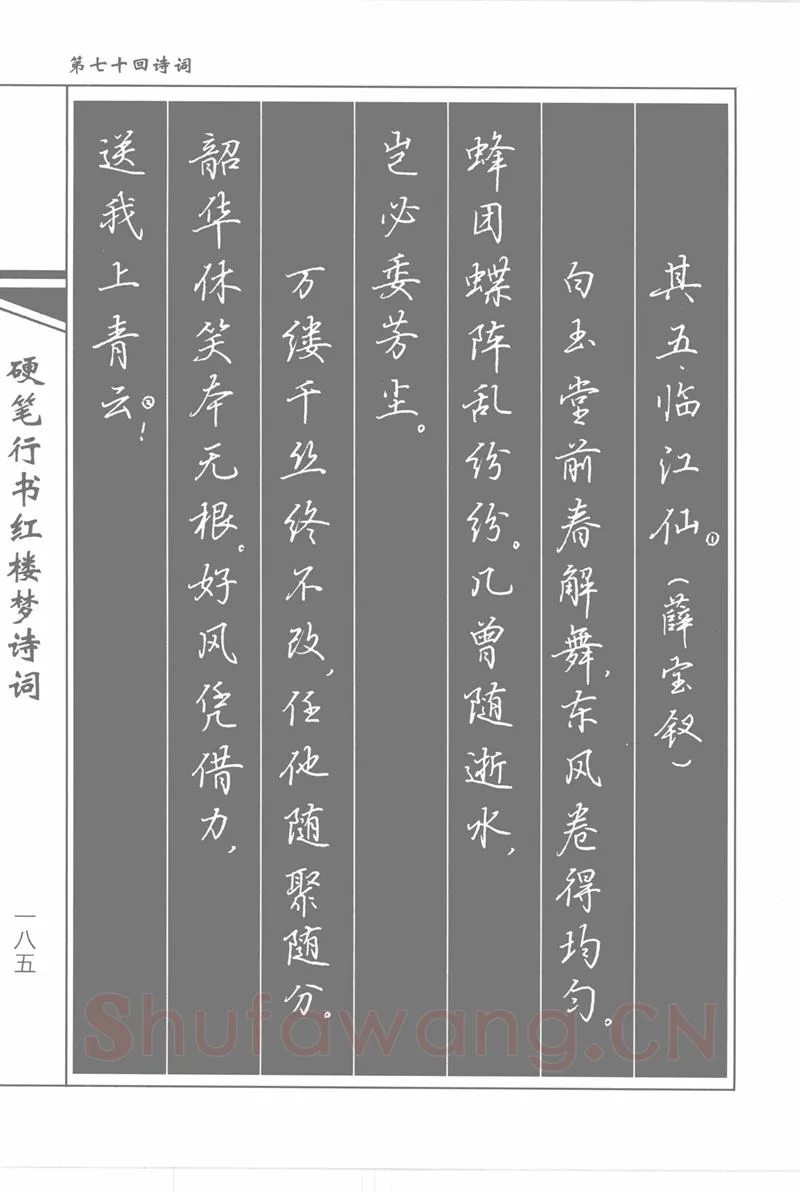 第七十回诗词
其五·临江仙。①（薛宝钗）
白玉堂前春解舞，东风卷得均匀。
蜂团蝶阵乱纷纷。几曾随逝水，
岂必委芳尘。
万缕千丝终不改，任他随聚随分。
韶华休笑本无根。好风凭借力，
送我上青云②！
硬笔行书红楼梦诗词
一八五
Shufawang.CN